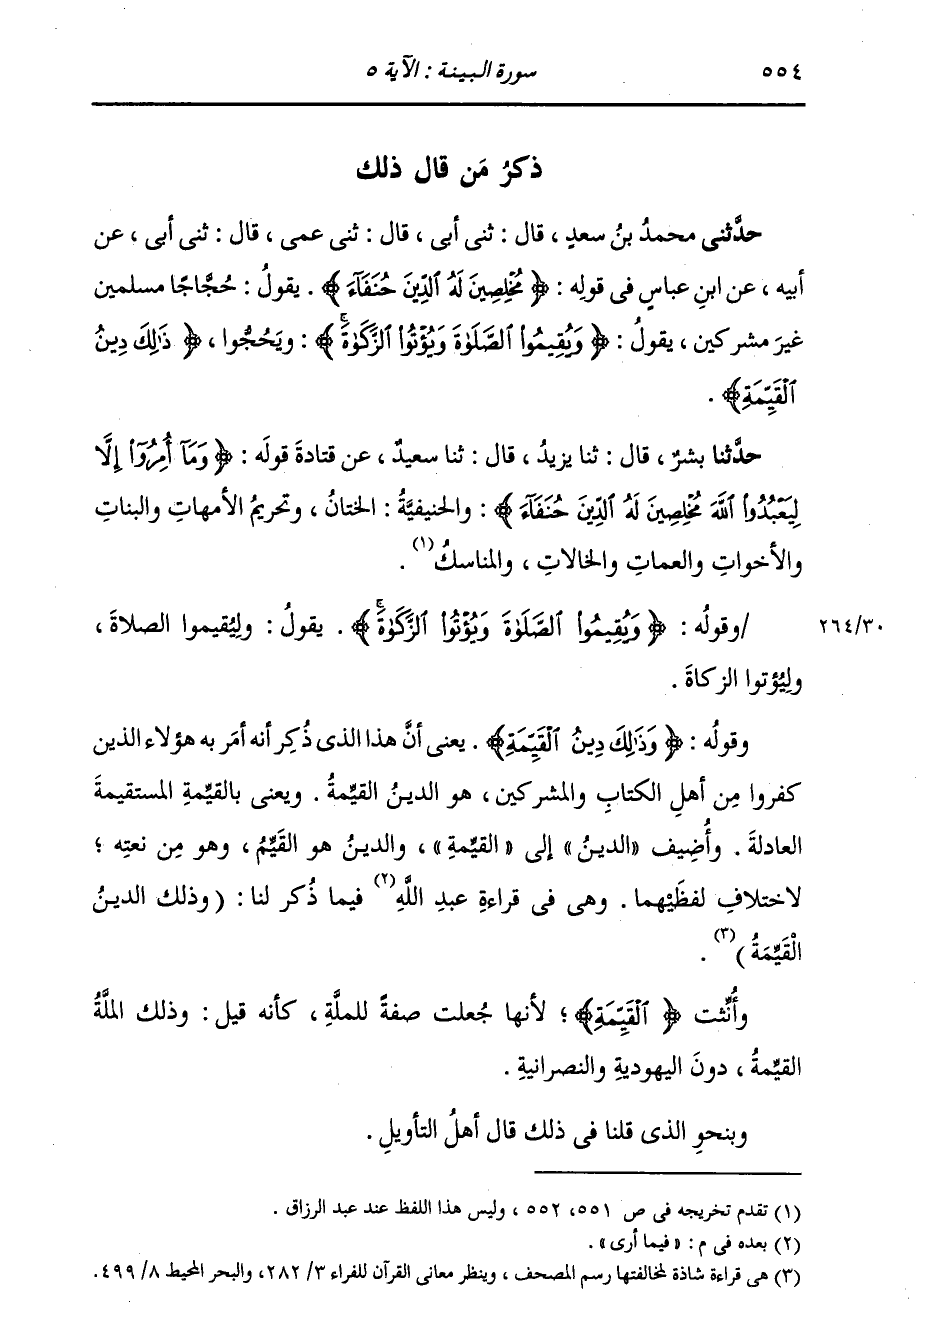 ٥٥٤ سورة البينة : الآية ٥
ذكرُ مَن قال ذلك
حدَّثنى محمدُ بنُ سعدٍ ، قال : ثنى أبى ، قال : ثنى عمى ، قال : ثنى أبى ، عن
أبيه ، عن ابنِ عباسٍ فى قولِه : ﴿ مُخْلِصِينَ لَهُ ٱلدِّينَ حُنَفَآءَ ﴾ . يقولُ : حُجَّاجًا مسلمين
غيرَ مشركين ، يقولُ : ﴿ وَيُقِيمُوا۟ ٱلصَّلَوٰةَ وَيُؤْتُوا۟ ٱلزَّكَوٰةَۚ ﴾ : ويَحُجُّوا ، ﴿ ذَٰلِكَ دِينُ
ٱلْقَيِّمَةِ ﴾ .
حدَّثنا بشرٌ ، قال : ثنا يزيدُ ، قال : ثنا سعيدٌ ، عن قتادةَ قولَه : ﴿ وَمَآ أُمِرُوٓا۟ إِلَّا
لِيَعْبُدُوا۟ ٱللَّهَ مُخْلِصِينَ لَهُ ٱلدِّينَ حُنَفَآءَ ﴾ : والحنيفيَّةُ : الختانُ ، وتحريمُ الأمهاتِ والبناتِ
والأخواتِ والعماتِ والخالاتِ ، والمناسكُ(١) .
٢٦٤/٣٠ /وقولُه : ﴿ وَيُقِيمُوا۟ ٱلصَّلَوٰةَ وَيُؤْتُوا۟ ٱلزَّكَوٰةَۚ ﴾ . يقولُ : ولِيُقيموا الصلاةَ ،
ولِيُؤتوا الزكاةَ .
وقولُه : ﴿ وَذَٰلِكَ دِينُ ٱلْقَيِّمَةِ ﴾ . يعنى أنَّ هذا الذى ذُكِر أنه أمَر به هؤلاء الذين
كفروا مِن أهلِ الكتابِ والمشركين ، هو الدينُ القيِّمةُ . ويعنى بالقيِّمةِ المستقيمةَ
العادلةَ . وأُضِيف «الدينُ» إلى «القيِّمةِ» ، والدينُ هو القَيِّمُ ، وهو مِن نعتِه ؛
لاختلافِ لفظَيْهما . وهى فى قراءةِ عبدِ اللَّهِ(٢) فيما ذُكر لنا : ( وذلك الدينُ
الْقَيِّمَةُ )(٣) .
وأُنِّثت ﴿ ٱلْقَيِّمَةِ ﴾ ؛ لأنها جُعلت صفةً للملَّةِ ، كأنه قيل : وذلك الملَّةُ
القيِّمةُ ، دونَ اليهوديةِ والنصرانيةِ .
وبنحوِ الذى قلنا فى ذلك قال أهلُ التأويلِ .
(١) تقدم تخريجه فى ص ٥٥١، ٥٥٢ ، وليس هذا اللفظ عند عبد الرزاق .
(٢) بعده فى م : « فيما أرى » .
(٣) هى قراءة شاذة لمخالفتها رسم المصحف ، وينظر معانى القرآن للفراء ٣/ ٢٨٢، والبحر المحيط ٨/ ٤٩٩ .